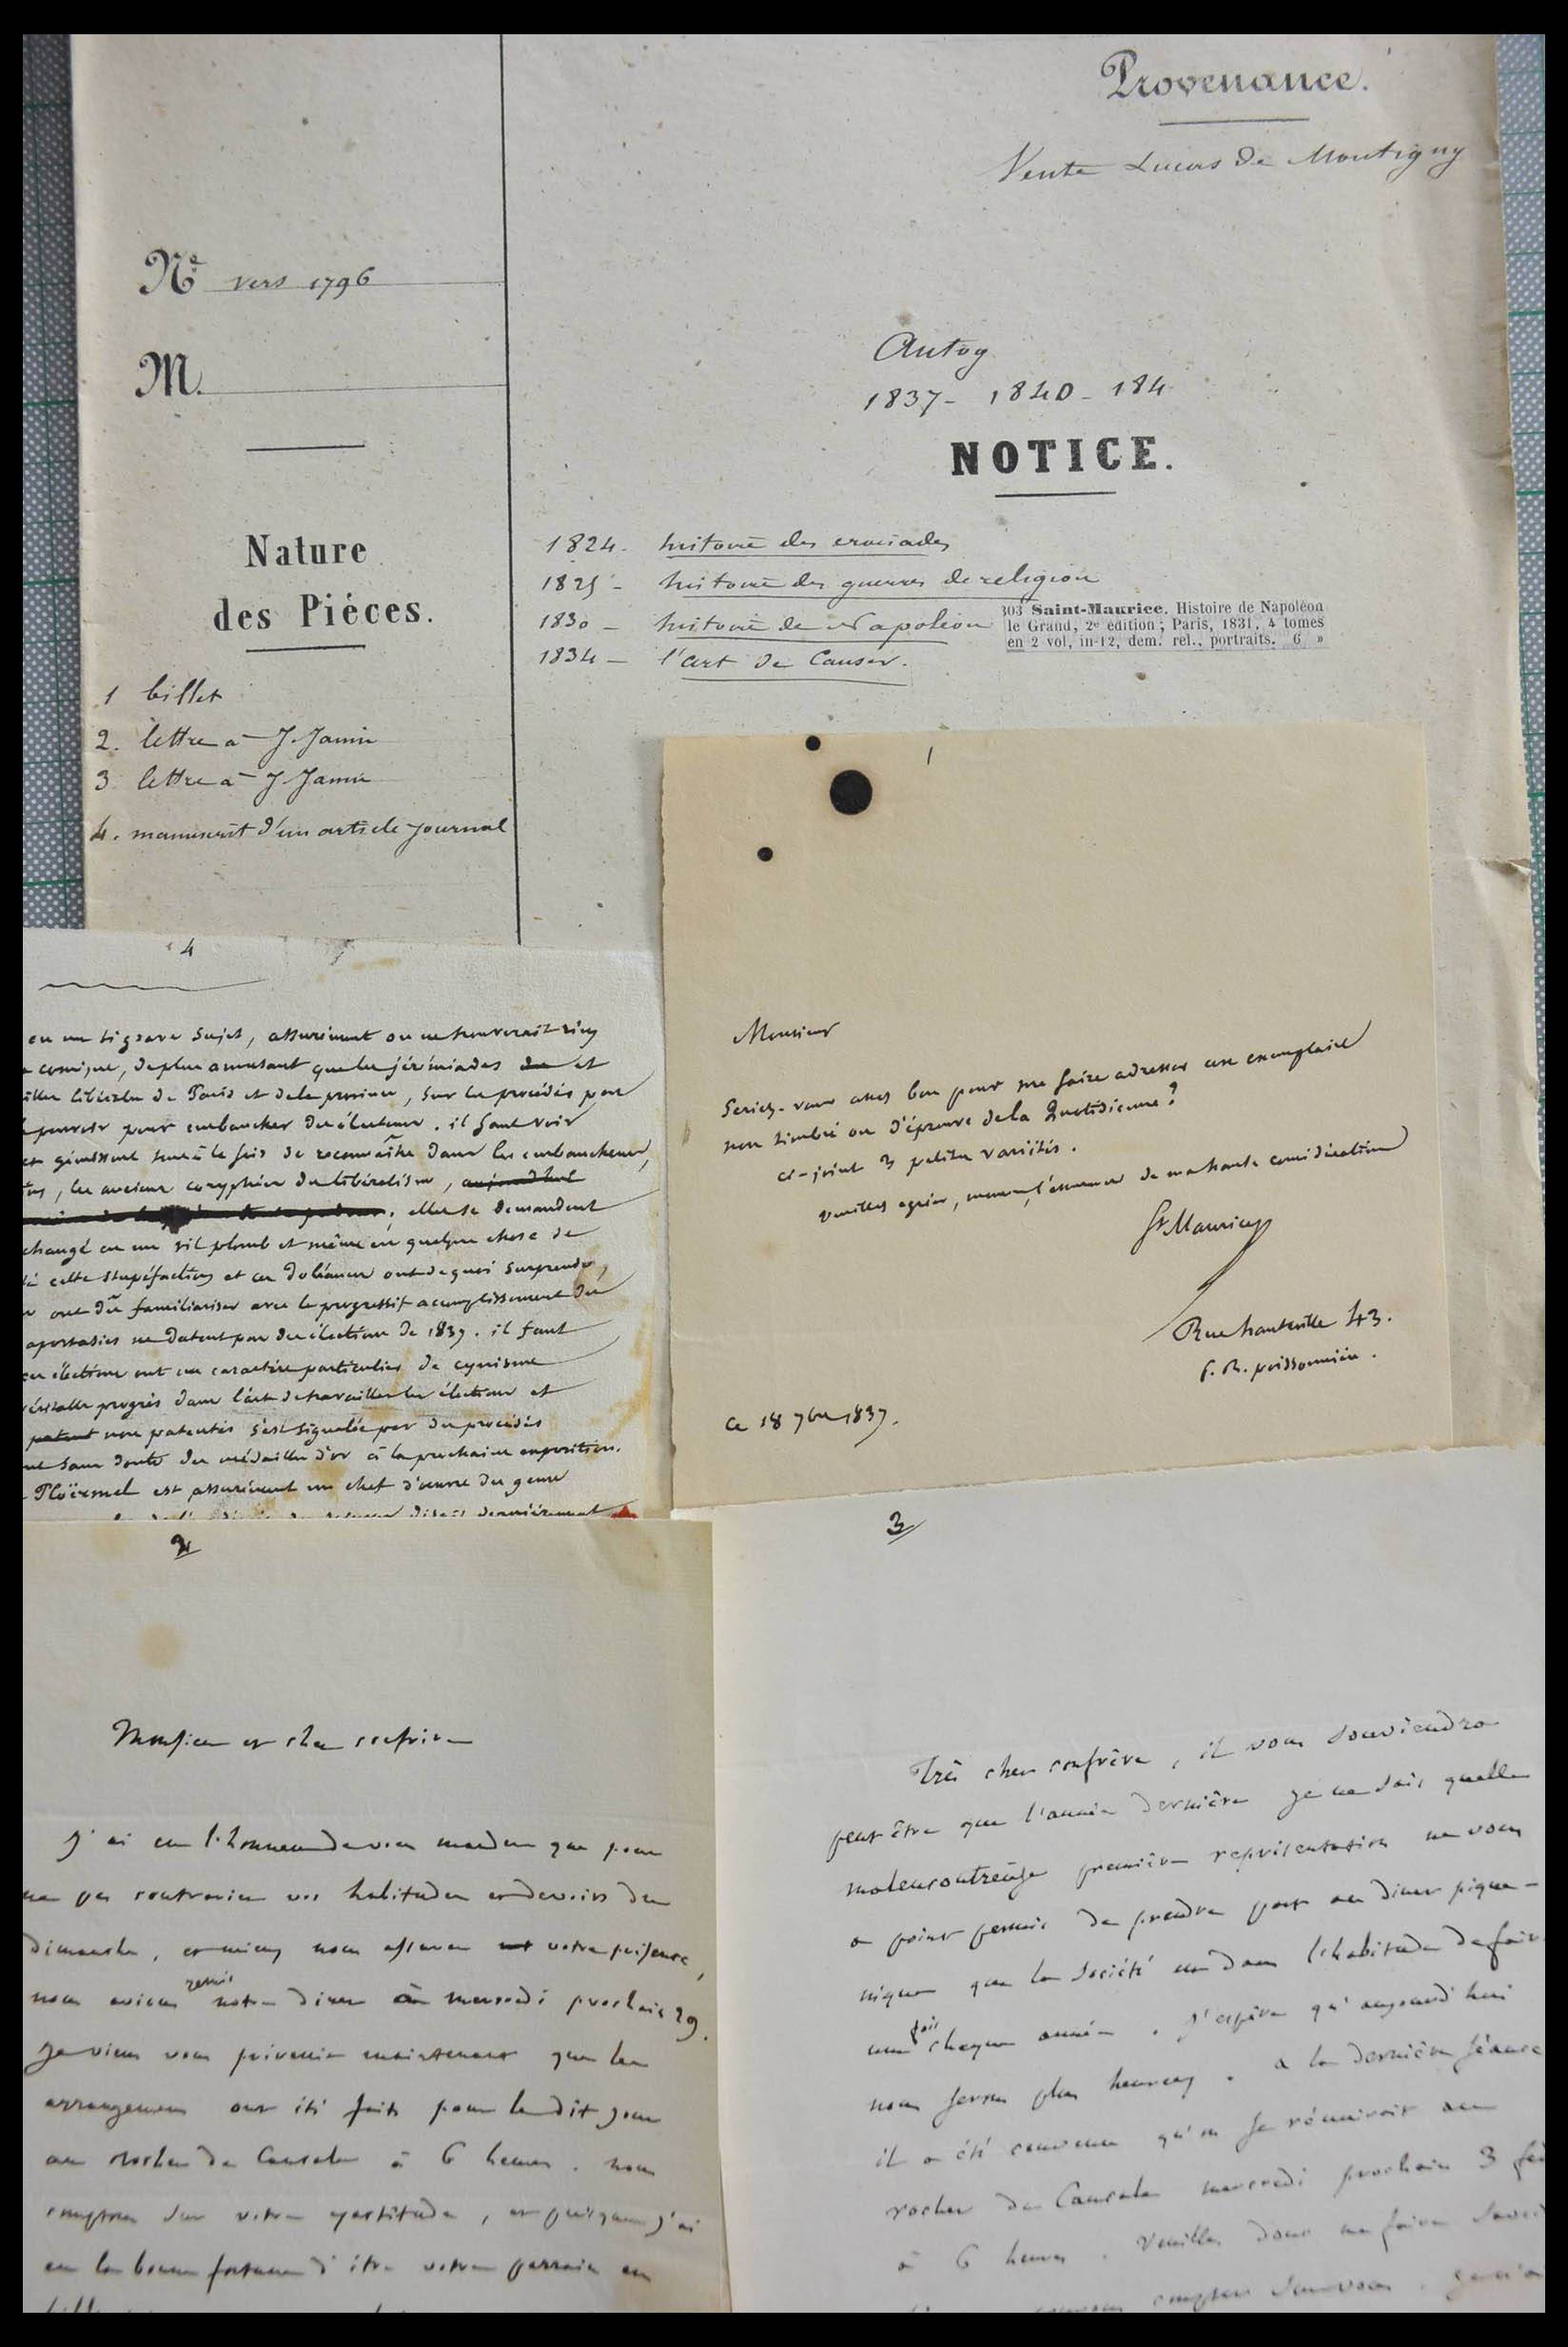 Provenance.
Vente Lucas de Montigny
Né vers 1796
M.
Autog
1837 - 1840 - 184
NOTICE.
Nature
des Piéces.
1 billet
2. lettre à J. Janin
3 lettre à J Janin
4. manuscrit d'un article journal
1824 - histoire des croisades
1825 - histoire des guerres de religion
1830 - histoire de Napoléon
303 Saint-Maurice. Histoire de Napoléon
le Grand, 2e édition; Paris, 1831, 4 tomes
en 2 vol, in-12, dem. rel., portraits. 6 »
1834 - l'art de Causer.
1
Monsieur
Seriez-vous assez bon pour me faire adresser un exemplaire
non timbré ou d'épreuve de la Quotidienne?
ci-joint 3 petites variétés.
veuillez agréer, monsieur, l'assurance de ma haute considération
St Maurice
Rue hauteville 43.
f. B. poissonnière.
Ce 18 7bre 1837.
4
en un si grave sujet, assurément on ne trouverait rien
comique, de plus amusant que les jérémiades de et
libérales de Paris et de la province, sur les procédés pour
pouvoir pour embaucher des électeurs. il faut voir
gémissent tout à la fois de reconnaître dans les embaucheurs,
les anciens coryphées du libéralisme, aujourd'hui
, elles se demandent
changé en un vil plomb et même en quelque chose de
cette stupéfaction et ces doléances ont de quoi surprendre,
ont dû familiariser avec le progressif accomplissement des
apostasies ne datent pas des élections de 1837. il faut
élections ont un caractère particulier de cynisme
véritable progrès dans l'art de travailler les élections et
patent non patentés s'est signalée par des procédés
sans doute des médailles d'or à la prochaine exposition.
Ploërmel est assurément un chef d'œuvre du genre
disait dernièrement
2
Monsieur et cher confrère
J'ai eu l'honneur de vous mander que pour
ne pas contrarier vos habitudes et devoirs du
dimanche, et mieux nous assurer votre présence,
nous avions remis notre diner à mercredi prochain 29.
Je viens vous prévenir maintenant que les
arrangemens ont été faits pour le dit jour
au rocher de Cancale à 6 heures. nous
comptons sur votre exactitude, et puisque j'ai
eu la bonne fortune d'être votre parrain en
3
Très cher confrère, il vous souviendra
peut être que l'année dernière je ne sais quelle
malencontreuse première représentation ne vous
a point permis de prendre part au diner pique-
nique que la Société est dans l'habitude de faire
une fois chaque année. J'espère qu'aujourd'hui
nous serons plus heureux. a la dernière séance
il a été convenu qu'on se réunirait au
rocher de Cancale mercredi prochain 3
à 6 heures. Veuillez donc me faire savoir
compter sur vous.